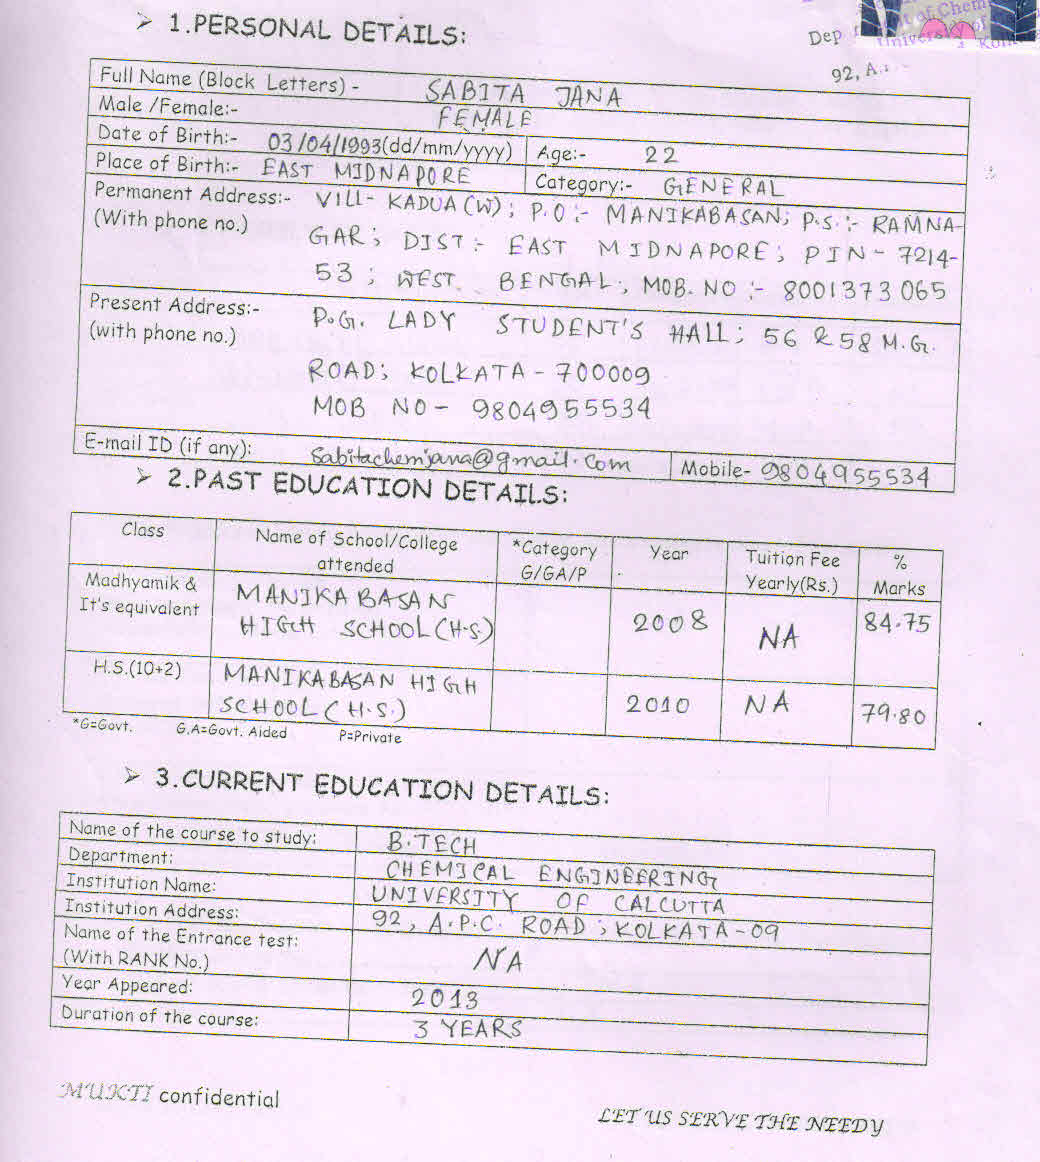 ➢ 1.PERSONAL DETAILS:
Dep of Chem
University of
Kolk
92, A.
Full Name (Block Letters) - SABITA JANA
Male /Female:- FEMALE
Date of Birth:- 03/04/1993(dd/mm/yyyy) Age:- 22
Place of Birth:- EAST MIDNAPORE Category:- GENERAL
Permanent Address:- VILL- KADUA(W); P.O:- MANIKABASAN; P.S.:- RAMNA-
(With phone no.) GAR; DIST:- EAST MIDNAPORE; PIN- 7214-
53; WEST BENGAL, MOB. NO:- 8001373065
Present Address:- P.G. LADY STUDENT'S HALL; 56 & 58 M.G.
(with phone no.) ROAD; KOLKATA- 700009
MOB NO- 9804955534
E-mail ID (if any): sabitachemjana@gmail.com Mobile- 9804955534
➢ 2.PAST EDUCATION DETAILS:
Class Name of School/College *Category Year Tuition Fee %
attended G/GA/P Yearly(Rs.) Marks
Madhyamik & MANIKABASAN
It's equivalent HIGH SCHOOL(H.S.) 2008 NA 84.75
H.S.(10+2) MANIKABASAN HIGH
SCHOOL(H.S.) 2010 NA 79.80
*G=Govt. G.A=Govt. Aided P=Private
➢ 3.CURRENT EDUCATION DETAILS:
Name of the course to study: B.TECH
Department: CHEMICAL ENGINEERING
Institution Name: UNIVERSITY OF CALCUTTA
Institution Address: 92, A.P.C. ROAD; KOLKATA-09
Name of the Entrance test:
(With RANK No.) NA
Year Appeared: 2013
Duration of the course: 3 YEARS
MUKTI confidential
LET US SERVE THE NEEDY